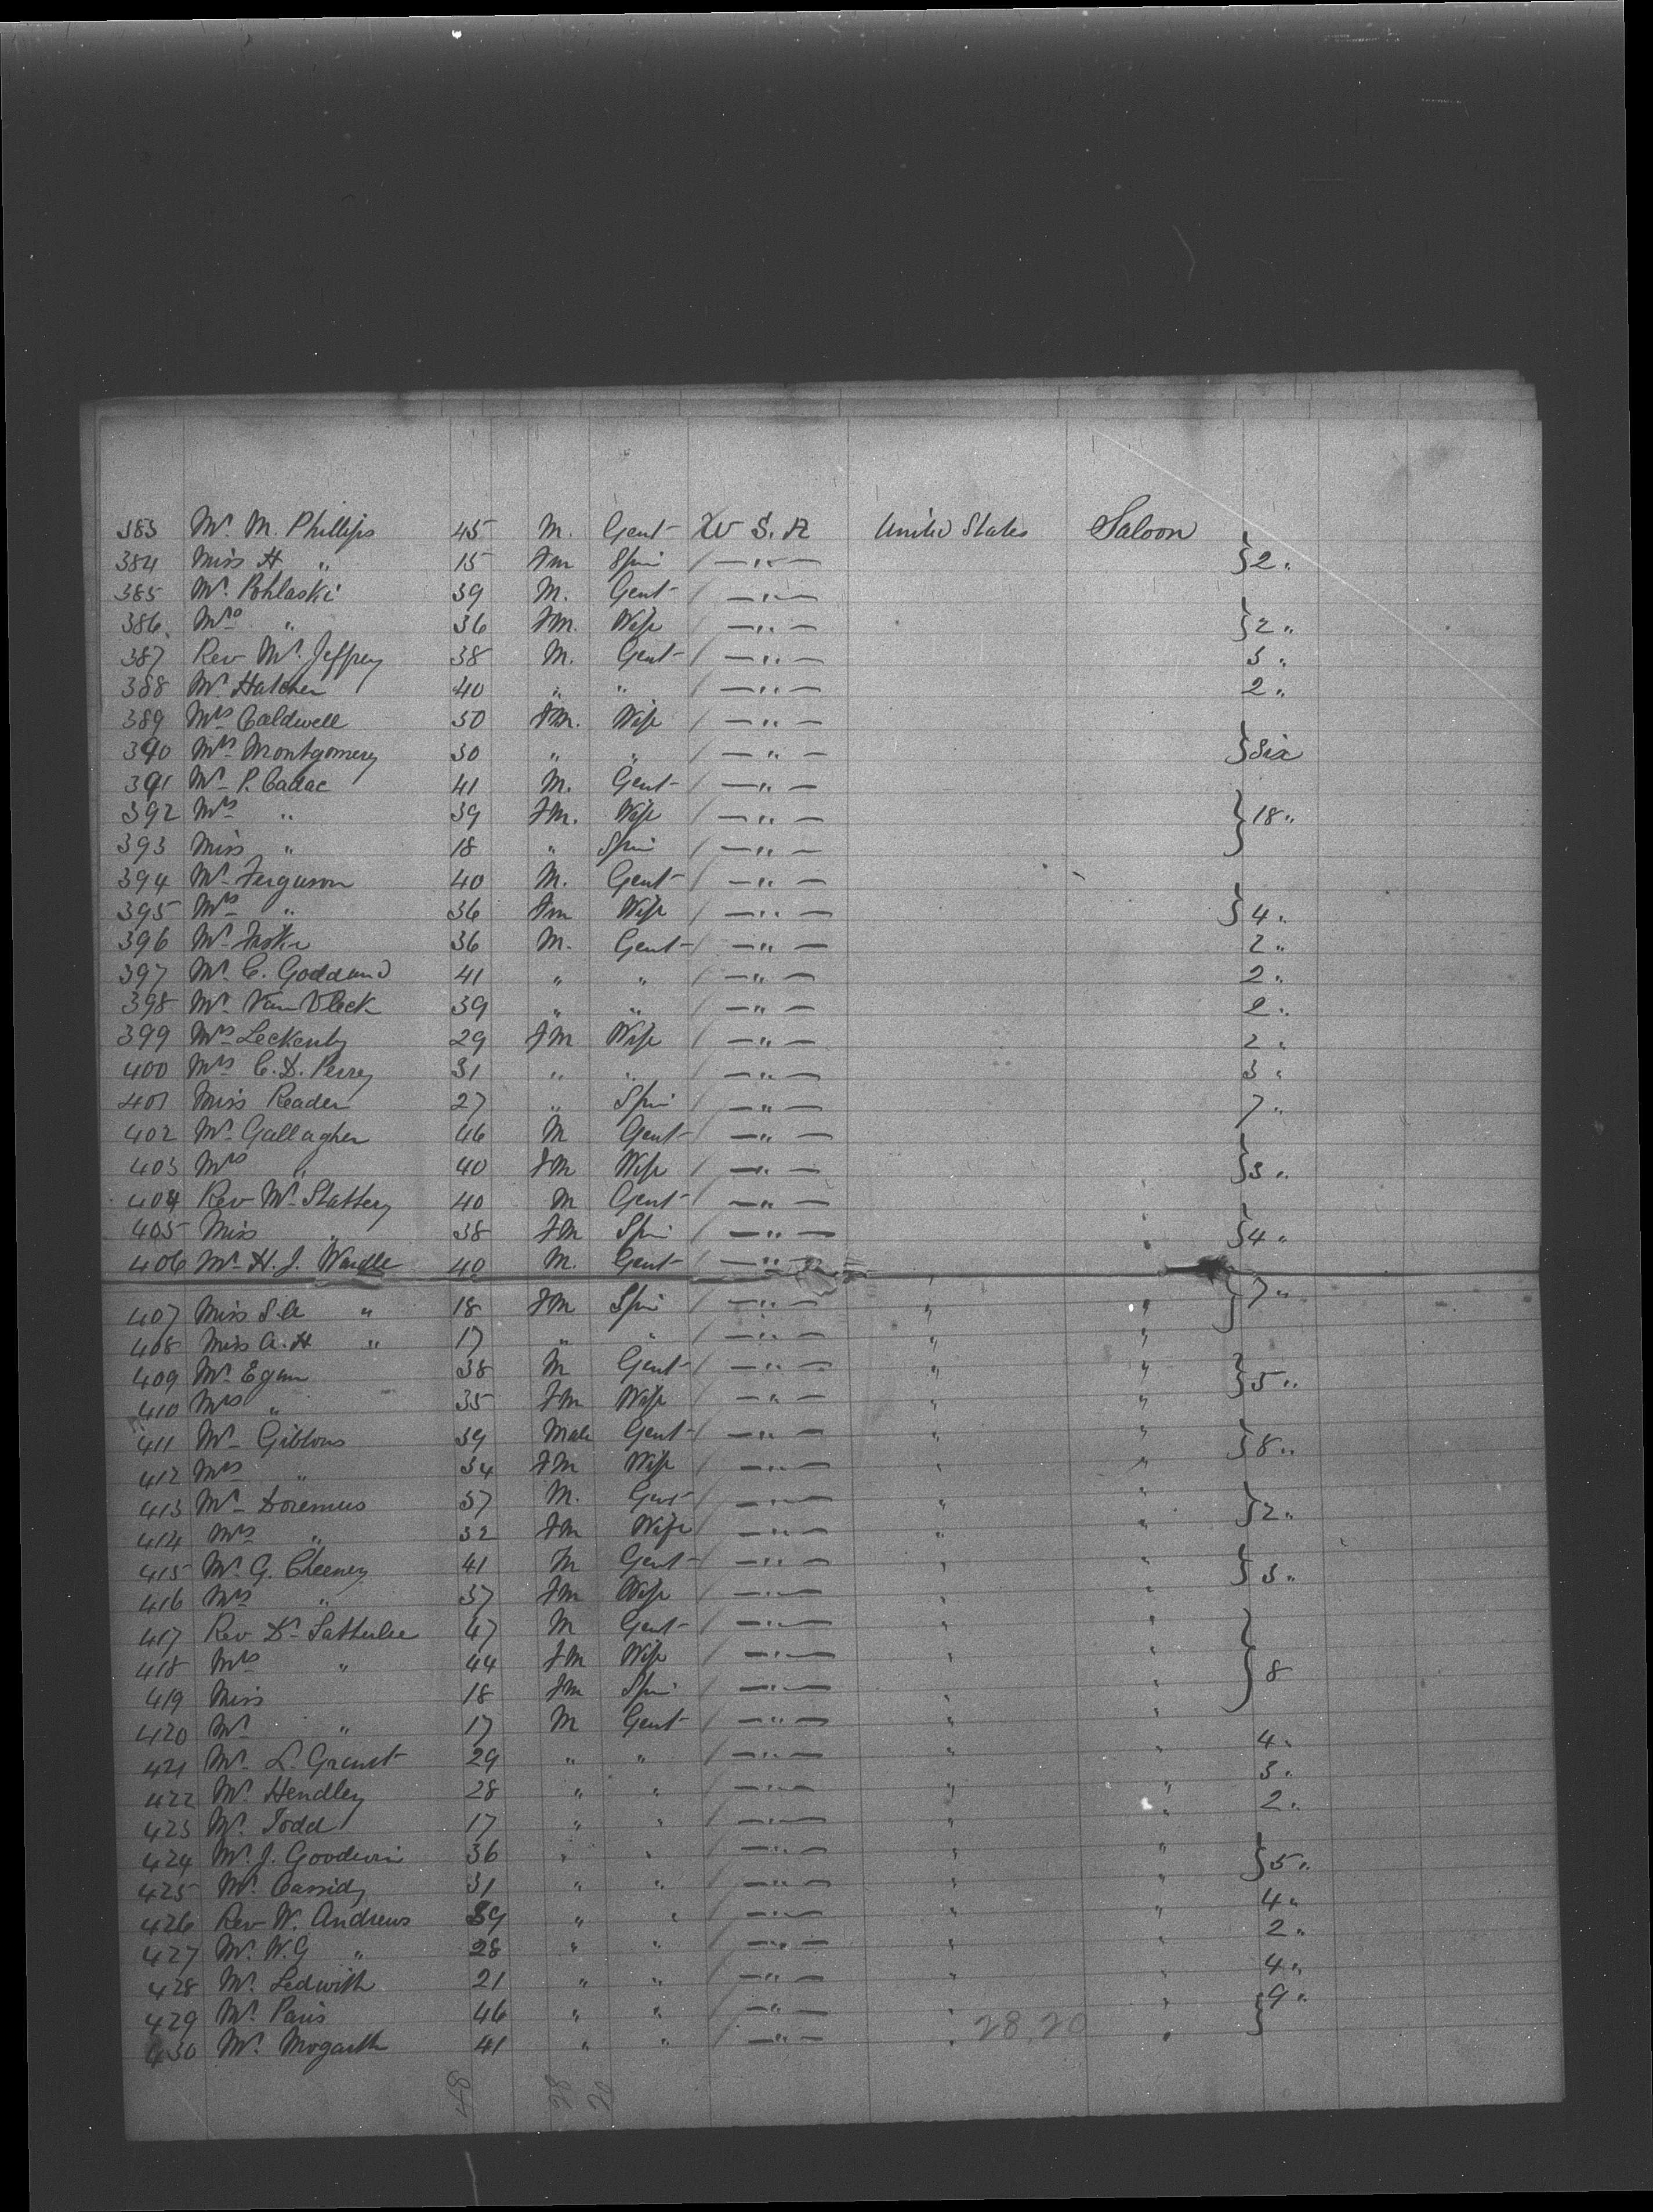 383 Mr. M. Phillips 45 M. Gent U S. A United States Saloon
384 Miss H " 15 Fm Spin / — " — } 2 "
385 Mr. Pohlaski 39 M. Gent / — " —
386 Mrs " 36 FM. Wife / — " — } 2 "
387 Rev Mr. Jeffrey 38 M. Gent / — " — 3 "
388 Mr. Hatcher 40 " " / — " — 2 "
389 Mrs Caldwell 50 FM. Wife / — " —
390 Mrs Montgomery 30 " " / — " — } Six
391 Mr P. Cadac 41 M. Gent / — " —
392 Mrs " 39 FM. Wife / — " — } 18 "
393 Miss " 18 " Spin / — " —
394 Mr Ferguson 40 M. Gent / — " —
395 Mrs " 36 Fm Wife / — " — } 4 "
396 Mr 36 M. Gent / — " — 2 "
397 Mr C. Goddard 41 " " / — " — 2 "
398 Mr. Van Vleck 39 " " / — " — 2 "
399 Mrs Leckenby 29 FM Wife / — " — 2 "
400 Mrs C. D. Perry 31 " " / — " — 3 "
401 Miss Reader 27 " Spin / — " — 7 "
402 Mr Gallagher 46 M Gent / — " —
403 Mrs " 40 FM Wife / — " — } 3 "
404 Rev Mr Slattery 40 M Gent / — " —
405 Miss " 38 FM Spin / — " — } 4 "
406 Mr H. J. Wardle 40 M. Gent / — " —
407 Miss S. A " 18 FM Spin / — " — " " } 7 "
408 Miss A. H " 17 " " / — " — " "
409 Mr Egan 38 M Gent / — " — " " } 5 "
410 Mrs " 35 FM Wife / — " — " "
411 Mr Gibbons 39 Male Gent / — " — " " } 8 "
412 Mrs " 34 FM Wife / — " — " "
413 Mr Doremus 37 M. Gent / — " — " " } 2 "
414 Mrs " 32 FM Wife / — " — " "
415 Mr. G. Cheeney 41 M Gent / — " — " " } 3 "
416 Mrs " 37 FM Wife / — " — " "
417 Rev Dr Satterlee 47 M Gent / — " — " "
418 Mrs " 44 FM Wife / — " — " " } 8
419 Miss 18 FM Spin / — " — " "
420 Mr " 17 M Gent / — " — " "
421 Mr L. 29 " " / — " — " " 4 "
422 Mr. Hendley 28 " " / — " — " " 3 "
423 Mr. Todd 17 " " / — " — " " 2 "
424 Mr. J. Goodwin 36 " " / — " — " " } 5 "
425 Mr. Cassidy 31 " " / — " — " "
426 Rev W. Andrews 39 " " / — " — " " 4 "
427 Mr. W. G " 28 " " / — " — " " 2 "
428 Mr. Ledwith 21 " " / — " — " " 4 "
429 Mr. Paris 46 " " / — " — " " } 9 "
430 Mr. Mogarth 41 " " / — " — " 28.20 "
48 28 20